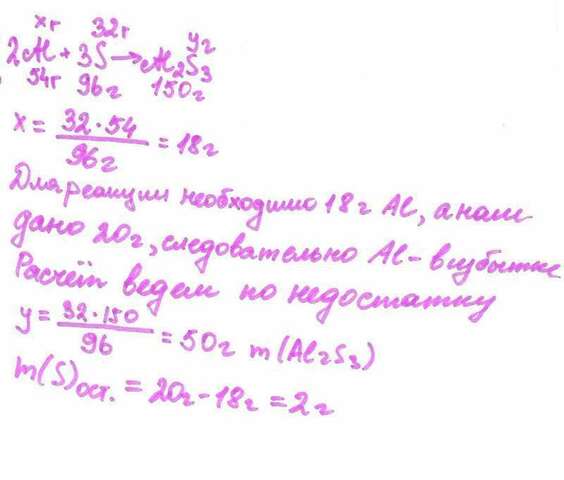 xг 32г yг
2Al + 3S → Al₂S₃
54г 96г 150г
x = 32·54 / 96г = 18г
Для реакции необходимо 18г Al, а нам
дано 20г, следовательно Al - в избытке
Расчёт ведем по недостатку
y = 32·150 / 96 = 50г m(Al₂S₃)
m(S)ост. = 20г - 18г = 2г